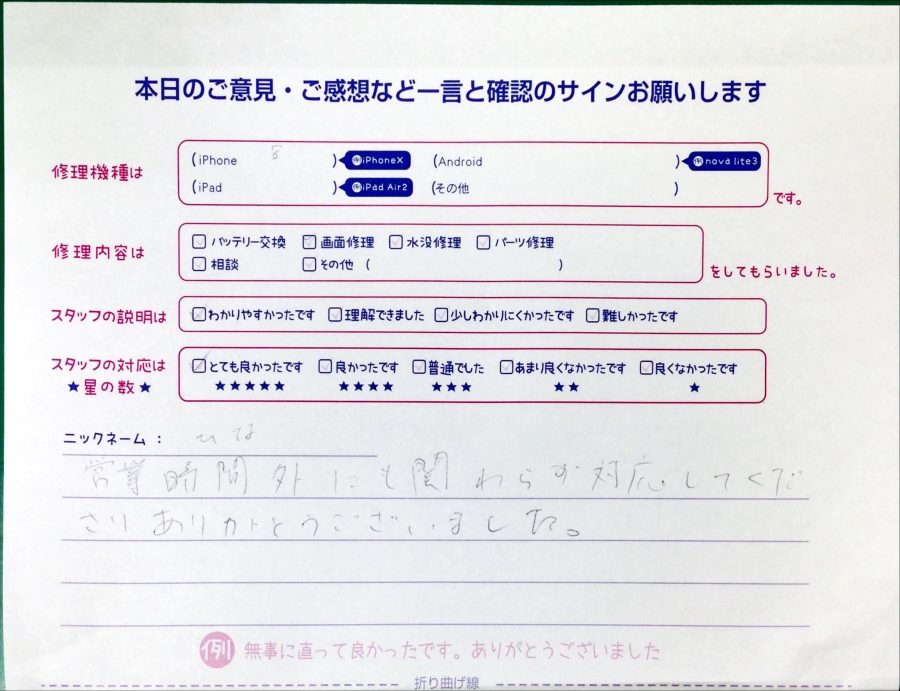 本日のご意見・ご感想など一言と確認のサインお願いします
修理機種は (iPhone 8 ) 例iPhoneX (Android ) 例nova lite3
(iPad ) 例iPad Air2 (その他 ) です。
修理内容は バッテリー交換 画面修理 水没修理 パーツ修理
相談 その他 ( ) をしてもらいました。
スタッフの説明は わかりやすかったです 理解できました 少しわかりにくかったです 難しかったです
スタッフの対応は とても良かったです 良かったです 普通でした あまり良くなかったです 良くなかったです
★星の数★ ★★★★★ ★★★★ ★★★ ★★ ★
ニックネーム: ひな
営業時間外にも関わらず対応してくだ
さりありがとうございました。
例 無事に直って良かったです。ありがとうございました
折り曲げ線